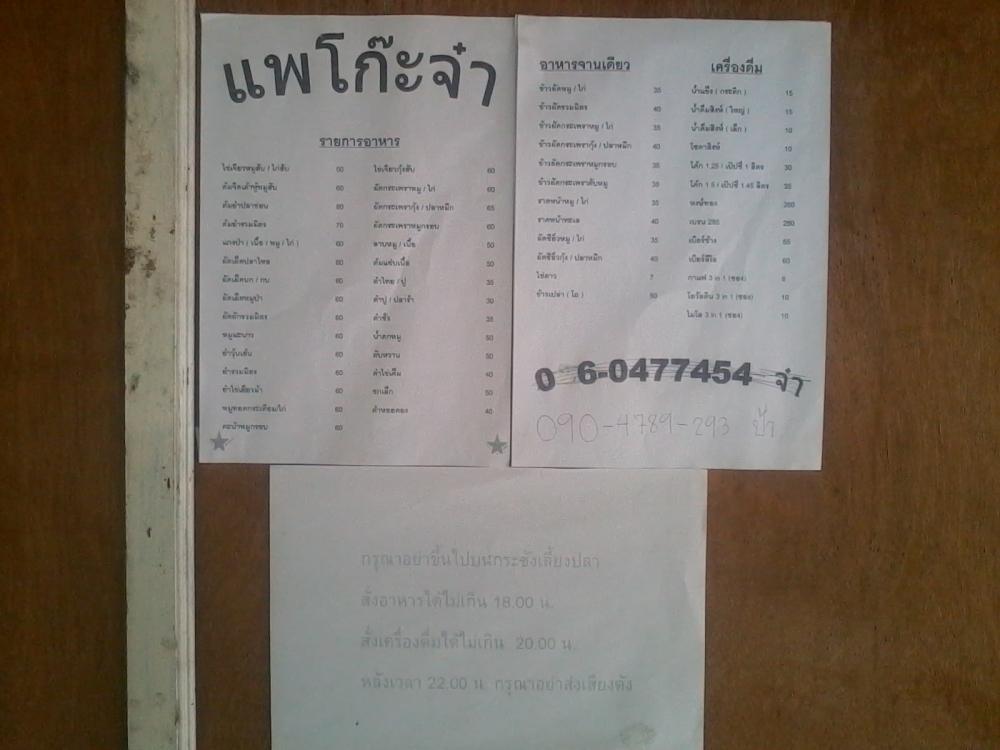 แพโก๊ะจ๋า
รายการอาหาร
ไข่เจียวหมูสับ / ไก่สับ 60
ต้มจืดเต้าหู้หมูสับ 60
ต้มยำปลาช่อน 80
ต้มยำรวมมิตร 70
แกงป่า ( เนื้อ / หมู / ไก่ ) 60
ผัดเผ็ดปลาไหล 60
ผัดเผ็ดนก / กบ 60
ผัดเผ็ดหมูป่า 60
ผัดผักรวมมิตร 60
หมูมะนาว 60
ยำวุ้นเส้น 60
ยำรวมมิตร 60
ยำไข่เยี่ยวม้า 60
หมูทอดกระเทียม/ไก่ 60
คะน้าหมูกรอบ 60
ไข่เจียวกุ้งสับ 60
ผัดกระเพราหมู / ไก่ 60
ผัดกระเพรากุ้ง / ปลาหมึก 65
ผัดกระเพราหมูกรอบ 60
ลาบหมู / เนื้อ 50
ต้มแซ่บเนื้อ 50
ตำไทย / ปู 35
ตำปู / ปลาร้า 30
ตำซั่ว 35
น้ำตกหมู 50
ตับหวาน 50
ตำไข่เค็ม 40
ซกเล็ก 50
ตำหอยดอง 40
อาหารจานเดียว
ข้าวผัดหมู / ไก่ 35
ข้าวผัดรวมมิตร 40
ข้าวผัดกระเพราหมู / ไก่ 35
ข้าวผัดกระเพรากุ้ง / ปลาหมึก 40
ข้าวผัดกระเพราหมูกรอบ 35
ข้าวผัดกระเพราตับหมู 35
ราดหน้าหมู / ไก่ 35
ราดหน้าทะเล 40
ผัดซีอิ๊วหมู / ไก่ 35
ผัดซีอิ๊วกุ้ง / ปลาหมึก 40
ไข่ดาว 7
ข้าวเปล่า ( โถ ) 50
เครื่องดื่ม
น้ำแข็ง ( กระติก ) 15
น้ำดื่มสิงห์ ( ใหญ่ ) 15
น้ำดื่มสิงห์ ( เล็ก ) 10
โซดาสิงห์ 10
โค้ก 1.25 / เป๊ปซี่ 1 ลิตร 30
โค้ก 1.5 / เป๊ปซี่ 1.45 ลิตร 35
หงษ์ทอง 260
เบรน 285 280
เบียร์ช้าง 65
เบียร์ลีโอ 60
กาแฟ 3 in 1 (ซอง) 8
โอวัลติน 3 in 1 (ซอง) 10
ไมโล 3 in 1 (ซอง) 10
0 6-0477454 จ๋า
090-4789-293 ป้า
กรุณาอย่าขึ้นไปบนกระชังเลี้ยงปลา
สั่งอาหารได้ไม่เกิน 18.00 น.
สั่งเครื่องดื่มได้ไม่เกิน 20.00 น.
หลังเวลา 22.00 น. กรุณาอย่าส่งเสียงดัง